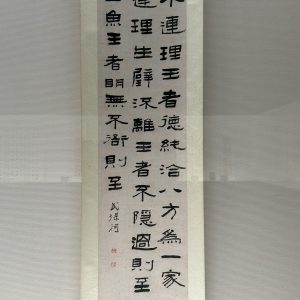 木連理王者德純洽八方為一家
連理生璧流離王者不隱過則至
魚王者明無不衙則至